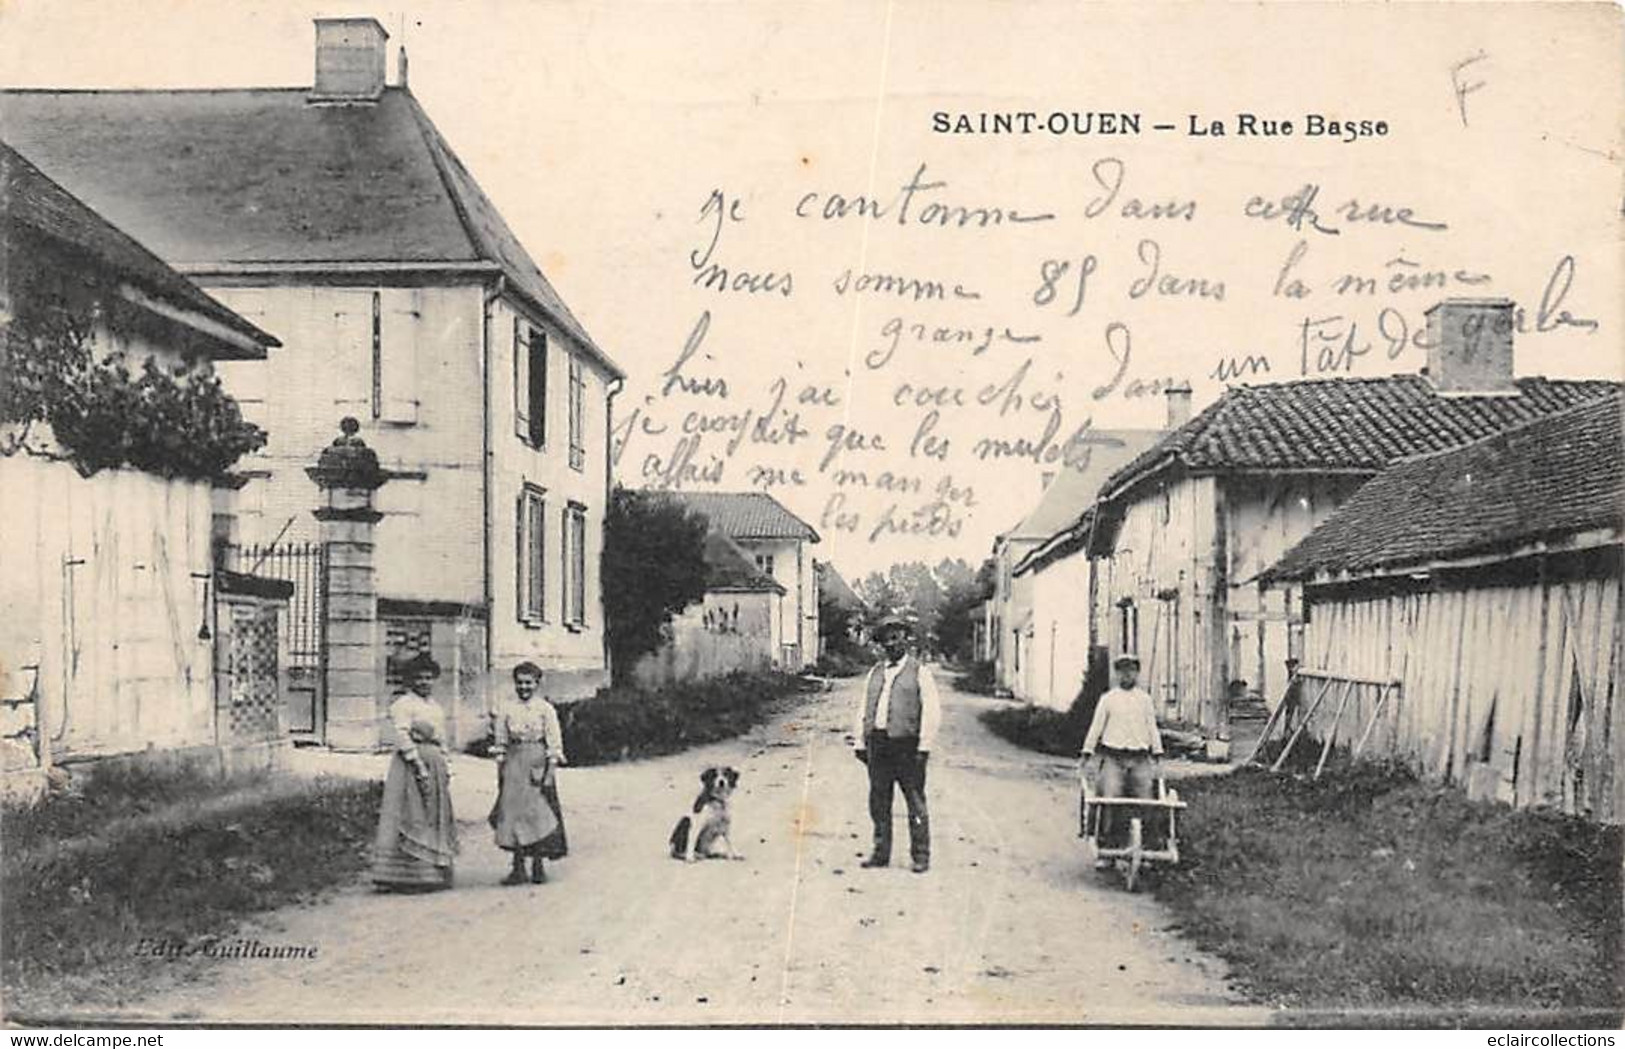 F
SAINT-OUEN – La Rue Basse
Je cantonne dans cette rue
nous somme 85 dans la même
grange
hier j'ai couchéi dans un tât de gerbe
je croyait que les mulets
allais me manger
les pieds
Edit. Guillaume
eclaircollections